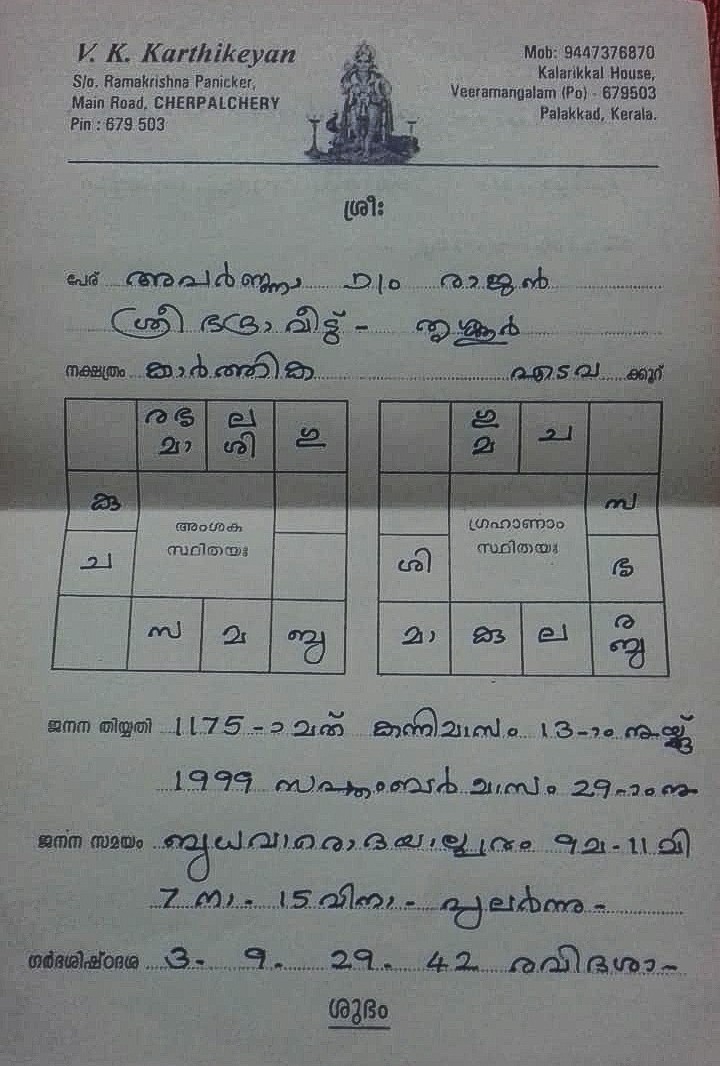 V. K. Karthikeyan
S/o. Ramakrishna Panicker,
Main Road, CHERPALCHERY
Pin : 679 503
Mob: 9447376870
Kalarikkal House,
Veeramangalam (Po) - 679503
Palakkad, Kerala.
ശ്രീഃ
പേര് അപർണ്ണ D/o രാജൻ
ശ്രീ ഭദ്രാ വീട്ട് -
നക്ഷത്രം കാർത്തിക എടവ ക്കൂറ്
ര ഭ ല ഗു
മാ ശി
കു
അംശക
സ്ഥിതയഃ
ച
സ മ ബു
ഗു ച
മ
സ
ഗ്രഹാണാം
സ്ഥിതയഃ
ശി ഭ
മാ കു ല ര
ബു
ജനന തിയ്യതി 1175 -ാ മത് കന്നിമാസം 13-ാം
1999 സപ്തംബർ മാസം 29-ാം നു
ജനന സമയം 9 മ - 11 മി
7 നാ - 15 വിനാ - പുലർന്നു -
ഗർഭശിഷ്ഠദശ 3 - 9 - 29 - 42 രവിദശാ -
ശുഭം